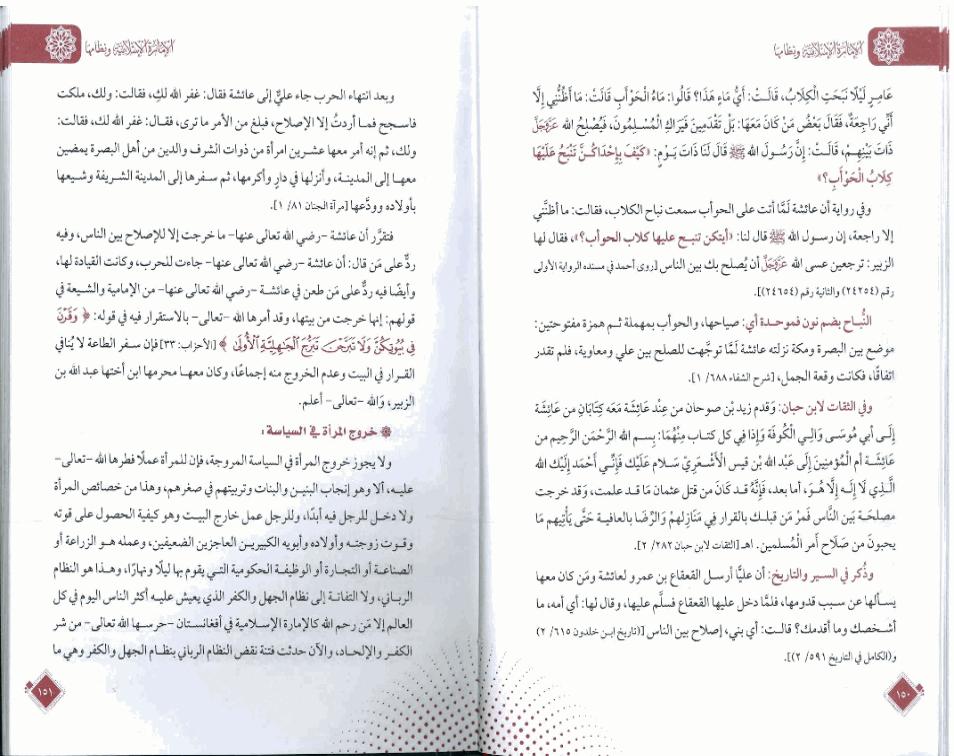 الإمارة الإسلامية ونظامها
عَامِرٍ لَيْلًا نَبَحَتِ الْكِلَابُ، قَالَتْ: أَيُّ مَاءٍ هَذَا؟ قَالُوا: مَاءُ الْحَوْأَبِ قَالَتْ: مَا أَظُنُّنِي إِلَّا
أَنِّي رَاجِعَةٌ، فَقَالَ بَعْضُ مَنْ كَانَ مَعَهَا: بَلْ تَقْدَمِينَ فَيَرَاكِ الْمُسْلِمُونَ، فَيُصْلِحُ الله عَزَّوَجَلَّ
ذَاتَ بَيْنِهِمْ، قَالَتْ: إِنَّ رَسُولَ الله ﷺ قَالَ لَنَا ذَاتَ يَوْمٍ: «كَيْفَ بِإِحْدَاكُنَّ تَنْبَحُ عَلَيْهَا
كِلَابُ الْحَوْأَبِ؟»
وفي رواية أن عائشة لَمَّا أتت على الحوأب سمعت نباح الكلاب، فقالت: ما أظنُّني
إلا راجعة، إن رسول الله ﷺ قال لنا: «أيتكن تنبح عليها كلاب الحوأب؟»، فقال لها
الزبير: ترجعين عسى الله عَزَّوَجَلَّ أن يُصلح بك بين الناس [روى أحمد في مسنده الرواية الأولى
رقم (٢٤٢٥٤) والثانية رقم (٢٤٦٥٤)].
النُّباح بضم نون فموحدة أي: صياحها، والحوأب بمهملة ثم همزة مفتوحتين:
موضع بين البصرة ومكة نزلته عائشة لَمَّا توجَّهت للصلح بين علي ومعاوية، فلم تقدر
اتفاقًا، فكانت وقعة الجمل، [شرح الشفاء ٦٨٨/ ١].
وفي الثقات لابن حبان: وَقدم زيد بْن صوحان من عِنْد عَائِشَة مَعَه كِتَابَانِ من عَائِشَة
إِلَى أبي مُوسَى وَالِي الْكُوفَة وَإِذَا فِي كل كتاب مِنْهُمَا: بِسم الله الرَّحْمَن الرَّحِيم من
عَائِشَة أم الْمُؤمنِينَ إِلَى عَبْد الله بْن قيس الْأَشْعَرِيّ سَلام عَلَيْك فَإِنِّي أَحْمد إِلَيْك الله
الَّذِي لَا إِلَه إِلَّا هُوَ، أما بعد، فَإِنَّهُ قد كَانَ من قتل عثمان مَا قد علمت، وَقد خرجت
مصلحَة بَين النَّاس فَمر من قبلك بالقرار فِي مَنَازِلهمْ وَالرِّضَا بالعافية حَتَّى يَأْتِيهم مَا
يحبونَ من صَلَاح أَمر الْمُسلمين. اهـ [الثقات لابن حبان ٢٨٢/ ٢].
وذُكر في السير والتاريخ: أن عليًّا أرسل القعقاع بن عمرو لعائشة ومَن كان معها
يسألها عن سبب قدومها، فلمَّا دخل عليها القعقاع فسلَّم عليها، وقال لها: أي أمه، ما
أشخصك وما أقدمك؟ قالت: أي بني، إصلاح بين الناس [(تاريخ ابن خلدون ٦١٥/ ٢)
و(الكامل في التاريخ ٥٩١/ ٢)].
١٥٠
الإمارة الإسلامية ونظامها
وبعد انتهاء الحرب جاء عليٌّ إلى عائشة فقال: غفر الله لكِ، فقالت: ولك، ملكت
فاسجح فما أردتُ إلا الإصلاح، فبلغ من الأمر ما ترى، فقال: غفر الله لك، فقالت:
ولك، ثم إنه أمر معها عشرين امرأة من ذوات الشرف والدين من أهل البصرة يمضين
معها إلى المدينة، وأنزلها في دارٍ وأكرمها، ثم سفرها إلى المدينة الشريفة وشيعها
بأولاده وودَّعها [مرآة الجنان ٨١/ ١].
فتقرَّر أن عائشة -رضي الله تعالى عنها- ما خرجت إلا للإصلاح بين الناس، وفيه
ردٌّ على مَن قال: أن عائشة -رضي الله تعالى عنها- جاءت للحرب، وكانت القيادة لها،
وأيضًا فيه ردٌّ على مَن طعن في عائشة -رضي الله تعالى عنها- من الإمامية والشيعة في
قولهم: إنها خرجت من بيتها، وقد أمرها الله -تعالى- بالاستقرار فيه في قوله: ﴿ وَقَرْنَ
فِي بُيُوتِكُنَّ وَلَا تَبَرَّجْنَ تَبَرُّجَ الْجَاهِلِيَّةِ الْأُولَى ﴾ [الأحزاب: ٣٣] فإن سفر الطاعة لا يُنافي
القرار في البيت وعدم الخروج منه إجماعًا، وكان معها محرمها ابن أختها عبد الله بن
الزبير، وَالله -تعالى- أعلم.
❋ خروج المرأة في السياسة:
ولا يجوز خروج المرأة في السياسة المروجة، فإن للمرأة عملًا فطرها الله -تعالى-
عليه، ألا وهو إنجاب البنين والبنات وتربيتهم في صغرهم، وهذا من خصائص المرأة
ولا دخل للرجل فيه أبدًا، وللرجل عمل خارج البيت وهو كيفية الحصول على قوته
وقوت زوجته وأولاده وأبويه الكبيرين العاجزين الضعيفين، وعمله هو الزراعة أو
الصناعة أو التجارة أو الوظيفة الحكومية التي يقوم بها ليلًا ونهارًا، وهذا هو النظام
الرباني، ولا التفاتة إلى نظام الجهل والكفر الذي يعيش عليه أكثر الناس اليوم في كل
العالم إلا مَن رحم الله كالإمارة الإسلامية في أفغانستان -حرسها الله تعالى- من شر
الكفر والإلحاد، والآن حدثت فتنة نقض النظام الرباني بنظام الجهل والكفر وهي ما
١٥١